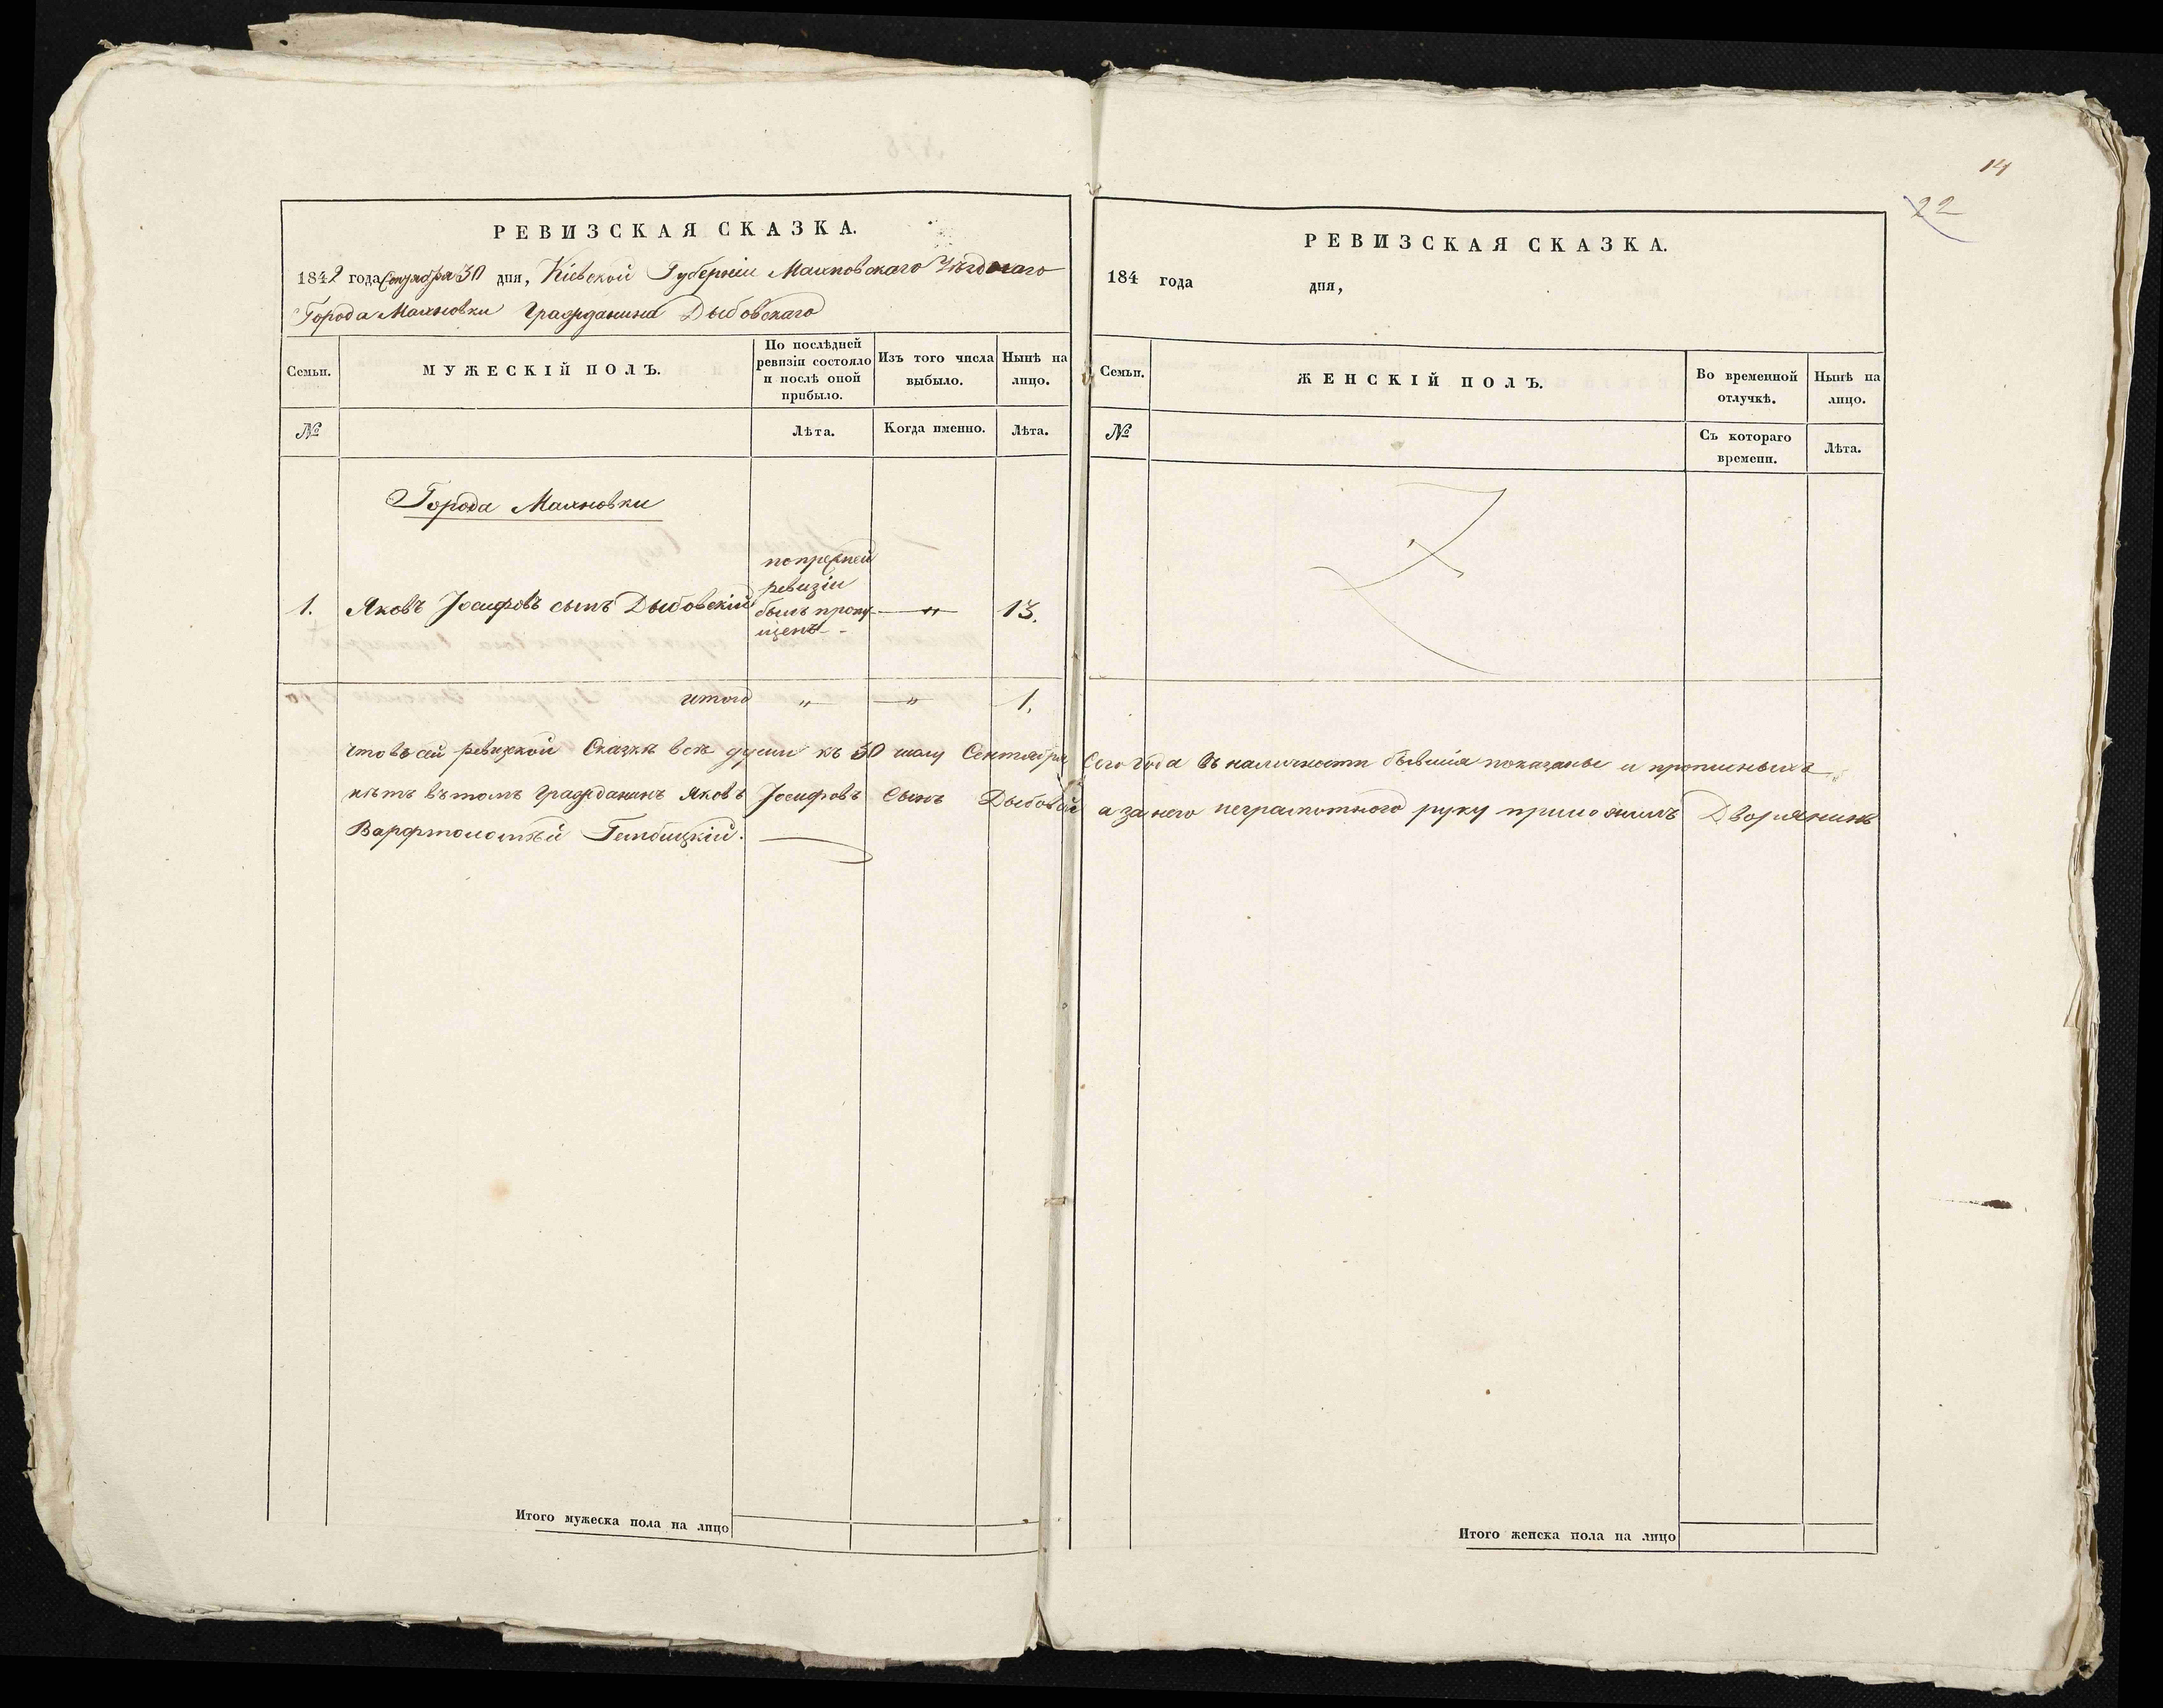 14
22
РЕВИЗСКАЯ СКАЗКА.
1842 года Сентября 30 дня, Кіевской Губерніи Махновскаго Уѣзднаго
Города Махновки Гражданина Дыбовскаго
Семьи.
МУЖЕСКІЙ ПОЛЪ.
По послѣдней ревизіи состояло и послѣ оной прибыло.
Изъ того числа выбыло.
Нынѣ на лицо.
№
Лѣта.
Когда именно.
Лѣта.
Города Махновки
1. Яковъ Іосифовъ сынъ Дыбовскій
попрежней
ревизіи
былъ пропу-
щенъ
"
13.
итого " " 1.
РЕВИЗСКАЯ СКАЗКА.
184 года дня,
Семьи.
ЖЕНСКІЙ ПОЛЪ.
Во временной отлучкѣ.
Нынѣ на лицо.
№
Съ котораго времени.
Лѣта.
Что въ сей ревизской Сказкѣ всѣ души къ 30 числу Сентября Сего Года въ наличности бывшія показаны и прописныхъ
нѣтъ вътомъ Гражданинъ Яковъ Іосифовъ Сынъ Дыбовскій а за него неграмотного руку приложилъ Дворянинъ
Варфоломѣй Гембицкій.
Итого мужеска пола на лицо
Итого женска пола на лицо